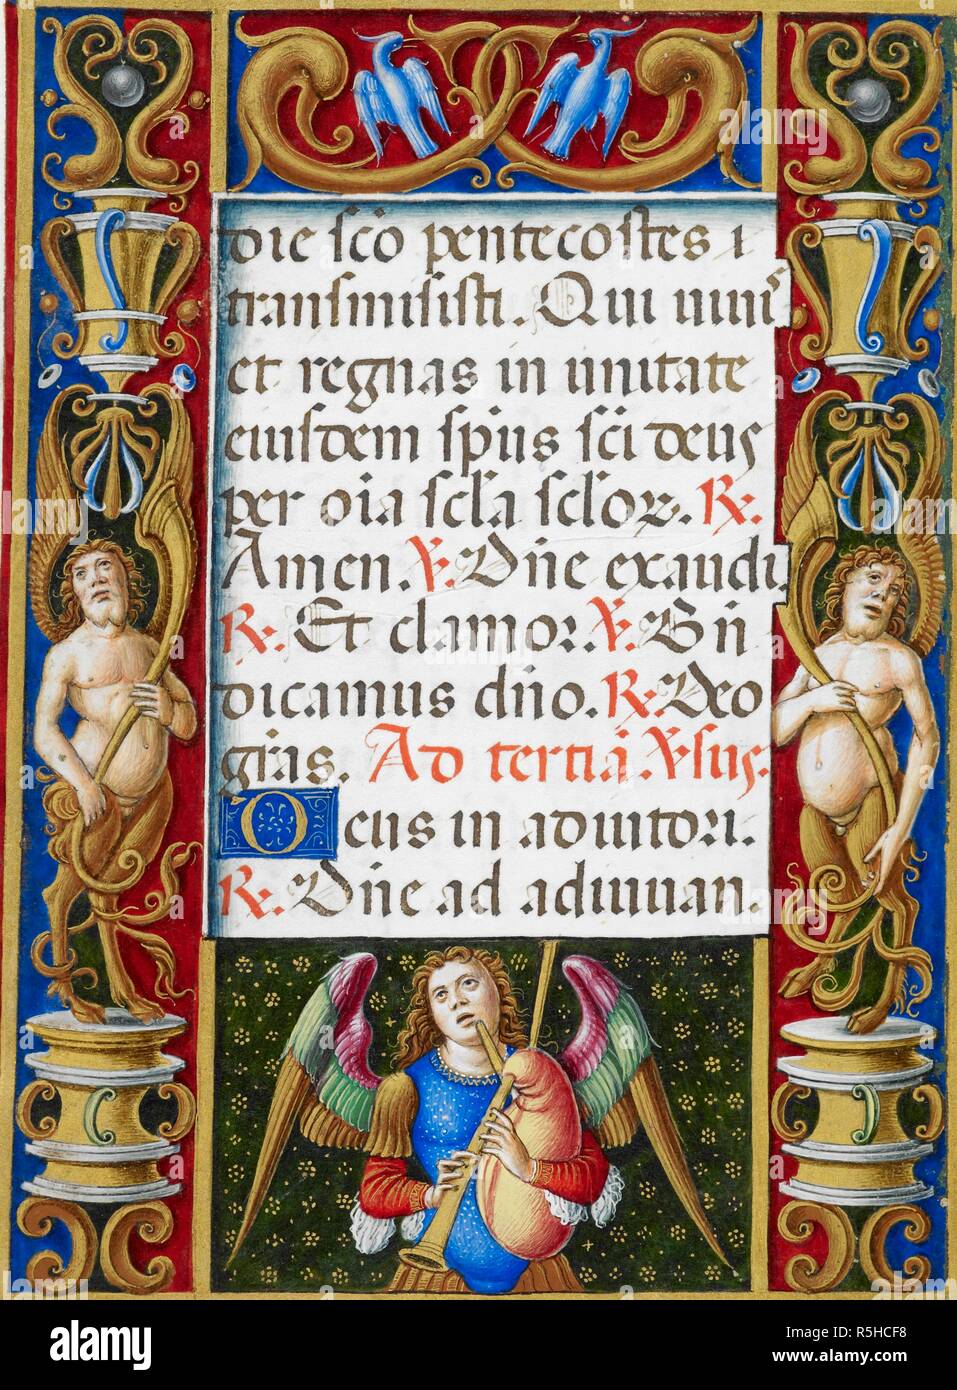 die sc̃o pentecostes i
transmisisti. Qui uiuis
et regnas in unitate
eiusdem sp̃us sc̃i deus
per oĩa sec̃la sec̃lor̃. ℟.
Amen. ℣. Dñe exaudi.
℟. Et clamor. ℣. Bñ
dicamus dño. ℟. Deo
grãs. Ad tertiã ℣sus.
Deus in adiutori.
℟. Dñe ad adiuuan.
alamy
Image ID: R5HCF8
www.alamy.com